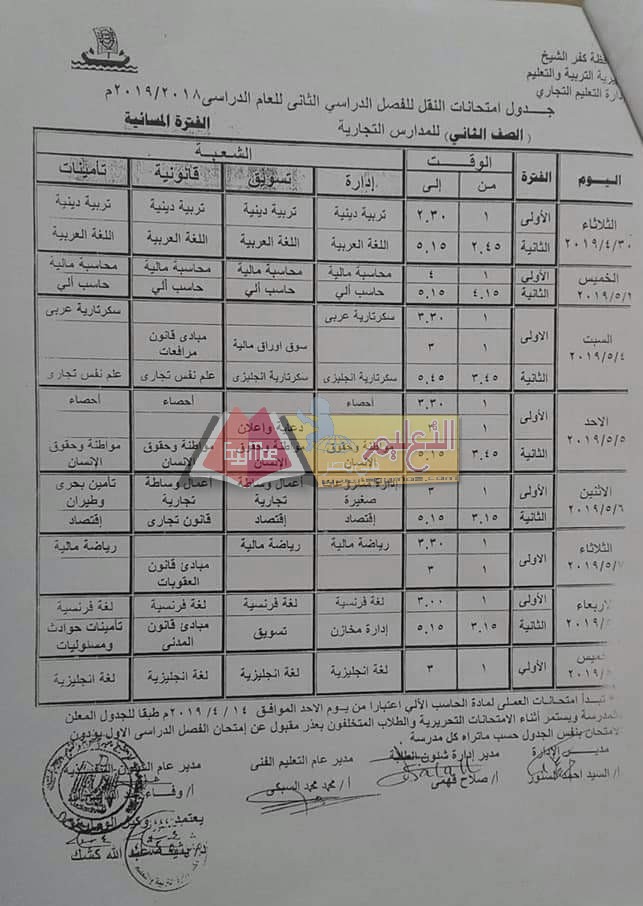 ظة كفر الشيخ
يرية التربية والتعليم
ارة التعليم التجاري
جدول امتحانات النقل للفصل الدراسي الثانى للعام الدراسى ٢٠١٩/٢٠١٨م
(الصف الثاني) للمدارس التجارية الفترة المسائية
اليوم الفترة الوقت الشعبة
من إلى إدارة تسويق قانونية تأمينات
الثلاثاء ٢٠١٩/٤/٣٠ الأولى ١ ٢.٣٠ تربية دينية تربية دينية تربية دينية تربية دينية
الثانية ٢.٤٥ ٥.١٥ اللغة العربية اللغة العربية اللغة العربية اللغة العربية
الخميس ٢٠١٩/٥/٢ الأولى ١ ٤ محاسبة مالية محاسبة مالية محاسبة مالية محاسبة مالية
الثانية ٤.١٥ ٥.١٥ حاسب ألي حاسب ألي حاسب ألي حاسب ألي
السبت ٢٠١٩/٥/٤ الاولى ١ ٣.٣٠ سكرتارية عربى سكرتارية عربى
١ ٣ سوق اوراق مالية مبادى قانون مرافعات
الثانية ٣.٤٥ ٥.٤٥ سكرتارية انجليزى سكرتارية انجليزى علم نفس تجارى علم نفس تجارى
الاحد ٢٠١٩/٥/٥ الأولى ١ ٣.٣٠ أحصاء أحصاء أحصاء
١ ٣ دعاية واعلان
الثانية ٣.٤٥ ٥.١٥ مواطنة وحقوق الإنسان مواطنة وحقوق الإنسان مواطنة وحقوق الإنسان مواطنة وحقوق الإنسان
الاثنين ٢٠١٩/٥/٦ الأولى ١ ٣ إدارة صغيرة أعمال وساطة تجارية أعمال وساطة تجارية تأمين بحرى وطيران
الثانية ٣.١٥ ٥.١٥ إقتصاد إقتصاد قانون تجارى إقتصاد
الثلاثاء ٢٠١٩/٥/ الأولى ١ ٣.٣٠ رياضة مالية رياضة مالية رياضة مالية
١ ٣ مبادئ قانون العقوبات
لاربعاء الأولى ١ ٣.٠٠ لغة فرنسية لغة فرنسية لغة فرنسية لغة فرنسية
الثانية ٣.١٥ ٥.١٥ إدارة مخازن تسويق مبادئ قانون المدنى تأمينات حوادث ومسئوليات
خميس الأولى ١ ٣ لغة انجليزية لغة انجليزية لغة انجليزية لغة انجليزية
* تبدأ امتحانات العملى لمادة الحاسب الألي اعتبارا من يوم الاحد الموافق ١٤ / ٤ / ٢٠١٩م طبقا للجدول المعلن
بالمدرسة ويستمر أثناء الامتحانات التحريرية والطلاب المتخلفون بعذر مقبول عن إمتحان الفصل الدراسى الاول يؤدون
الامتحان بنفس الجدول حسب ماتراه كل مدرسة
مدير الإدارة مدير إدارة شئون الطلبة مدير عام التعليم الفنى مدير عام
أ/ السيد احمد أ/ صلاح فهمى أ/ محمد محمد السبكى أ/ وفاء
يعتمد،،، وكيل الوزارة
عبد الله كشك
التعليم
Egynice